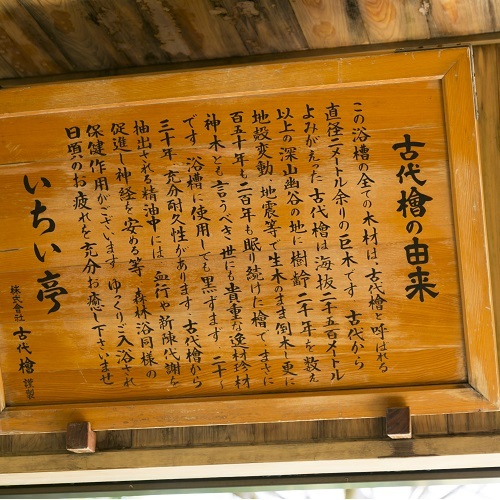 古代檜の由来
この浴槽の全ての木材は、古代檜と呼ばれる
直径二メートル余りの巨木です。古代から
よみがえった古代檜は、海抜二千五百メートル
以上の深山幽谷の地に樹齢二千年を数え
地殻変動、地震等で生木のまま倒木し更に
百五十年も二百年も眠り続けた檜で、まさに
神木とも言うべき、世にも貴重な逸材珍材
です。浴槽に使用しても黒ずまず、二十〜
三十年充分耐久性があります。古代檜から
抽出される精油中には、血行や新陳代謝を
促進し神経を安める等、森林浴同様の
保健作用がございます。ゆっくりご入浴され
日頃のお疲れを充分お癒し下さいませ
いちい亭
株式会社 古代檜 謹製